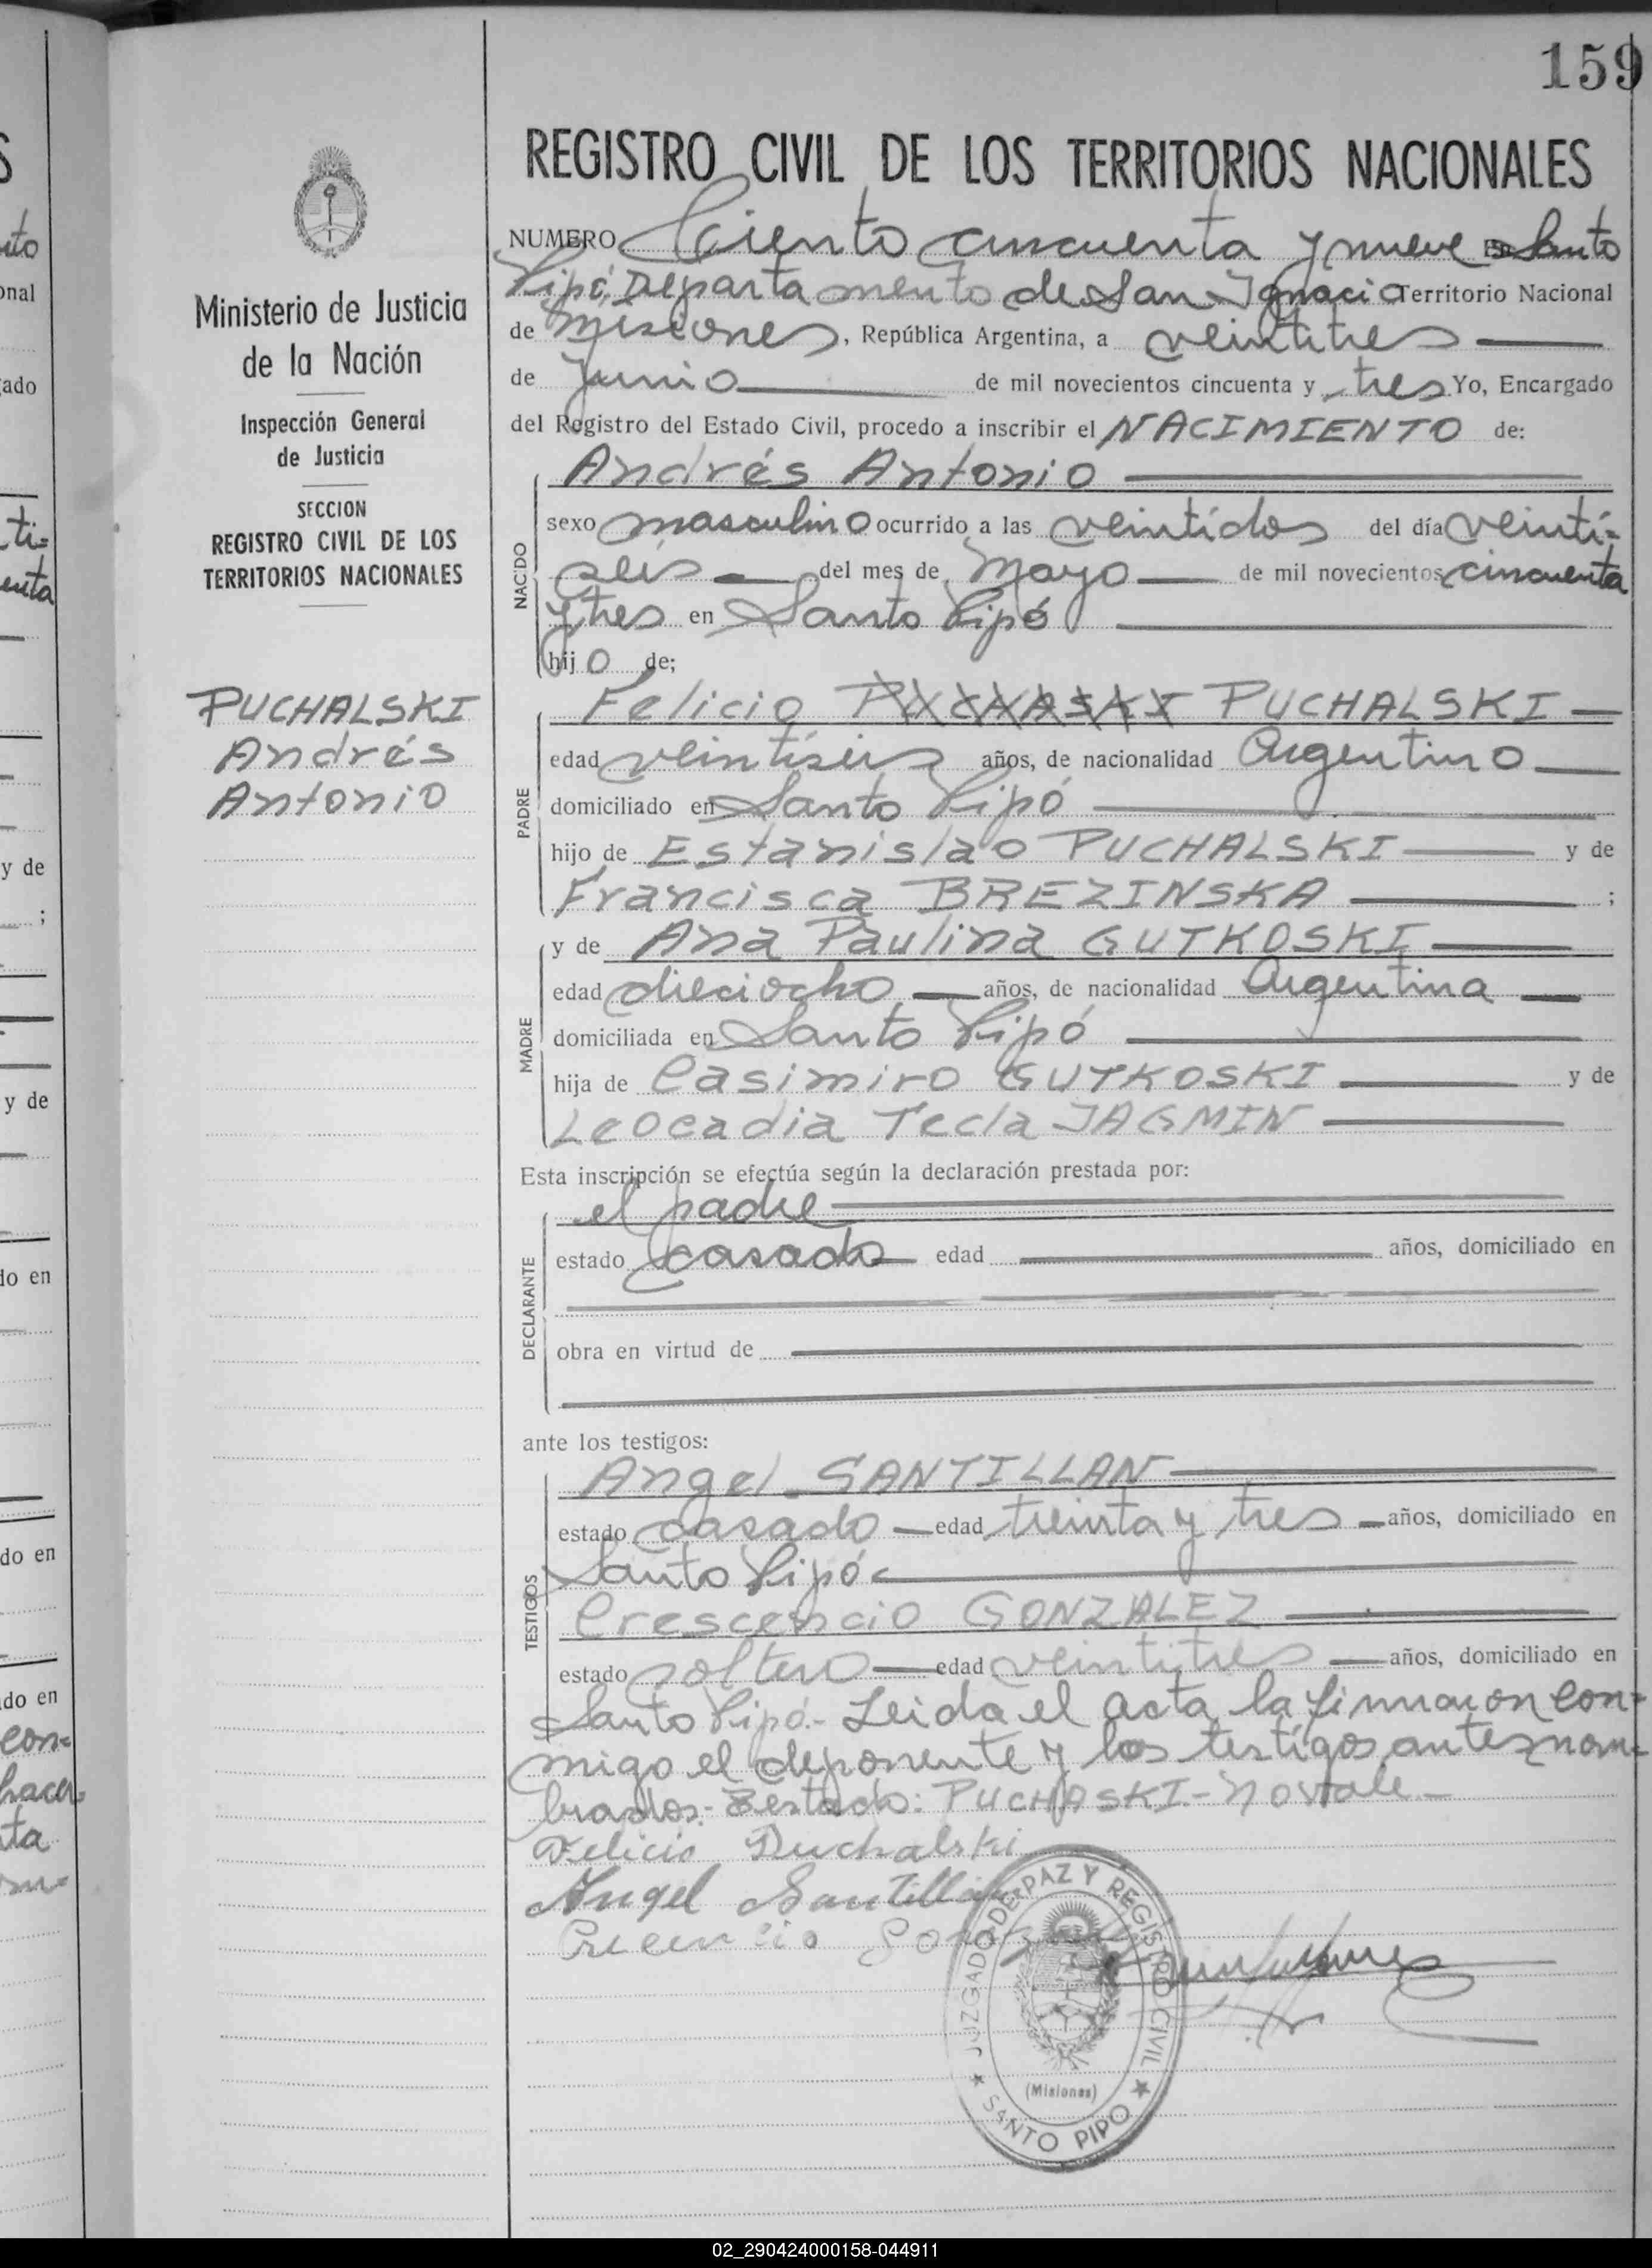 159
REGISTRO CIVIL DE LOS TERRITORIOS NACIONALES
Ministerio de Justicia
de la Nación
Inspección General
de Justicia
SECCION
REGISTRO CIVIL DE LOS
TERRITORIOS NACIONALES
PUCHALSKI
Andrés
Antonio
NUMERO Ciento cincuenta y nueve En Santo
Pipó, Departamento de San Ignacio Territorio Nacional
de Misiones, República Argentina, a veintitres
de Junio de mil novecientos cincuenta y tres Yo, Encargado
del Registro del Estado Civil, procedo a inscribir el NACIMIENTO de:
NACIDO
Andrés Antonio
sexo masculino ocurrido a las veintidos del día veinti=
seis del mes de Mayo de mil novecientos cincuenta
y tres en Santo Pipó
hijo de;
PADRE
Felicio PUCHASKI PUCHALSKI
edad veintiseis años, de nacionalidad Argentino
domiciliado en Santo Pipó
hijo de Estanislao PUCHALSKI y de
Francisca BREZINSKA ;
MADRE
y de Ana Paulina GUTKOSKI
edad dieciocho años, de nacionalidad Argentina
domiciliada en Santo Pipó
hija de Casimiro GUTKOSKI y de
Leocadia Tecla JAGMIN
Esta inscripción se efectúa según la declaración prestada por:
DECLARANTE
el padre
estado casado edad años, domiciliado en
obra en virtud de
ante los testigos:
TESTIGOS
Angel SANTILLAN
estado casado edad treinta y tres años, domiciliado en
Santo Pipó
Crescencio GONZALEZ
estado soltero edad veintitres años, domiciliado en
Santo Pipó.- Leida el acta la firmaron con=
migo el deponente y los testigos antes nom=
brados.- Testado: PUCHASKI - no vale -
Felicio Puchalski
Angel Santillán
JUZGADO DE PAZ Y REGISTRO CIVIL
(Misiones)
SANTO PIPO
02_290424000158-044911